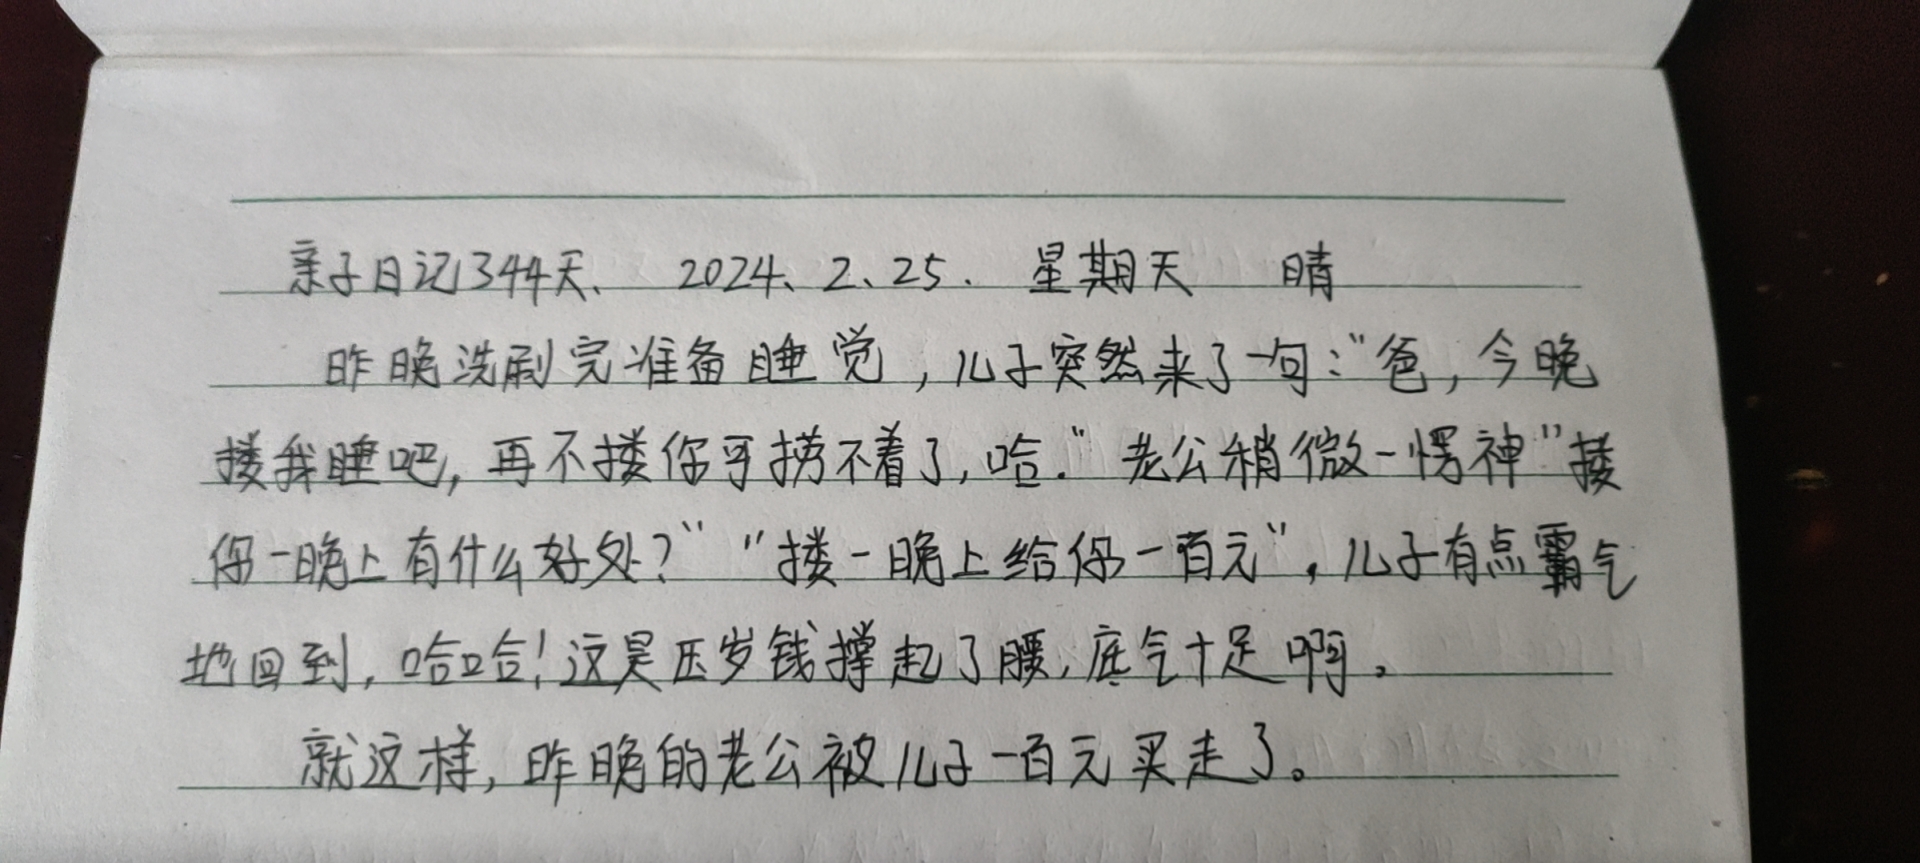 亲子日记344天、 2024、2、25. 星期天 晴
昨晚洗刷完准备睡觉，儿子突然来了一句："爸，今晚
搂我睡吧，再不搂你可捞不着了，哈."老公稍微一愣神"搂
你一晚上有什么好处？" "搂一晚上给你一百元"，儿子有点霸气
地回到，哈哈！这是压岁钱撑起了腰，底气十足啊。
就这样，昨晚的老公被儿子一百元买走了。